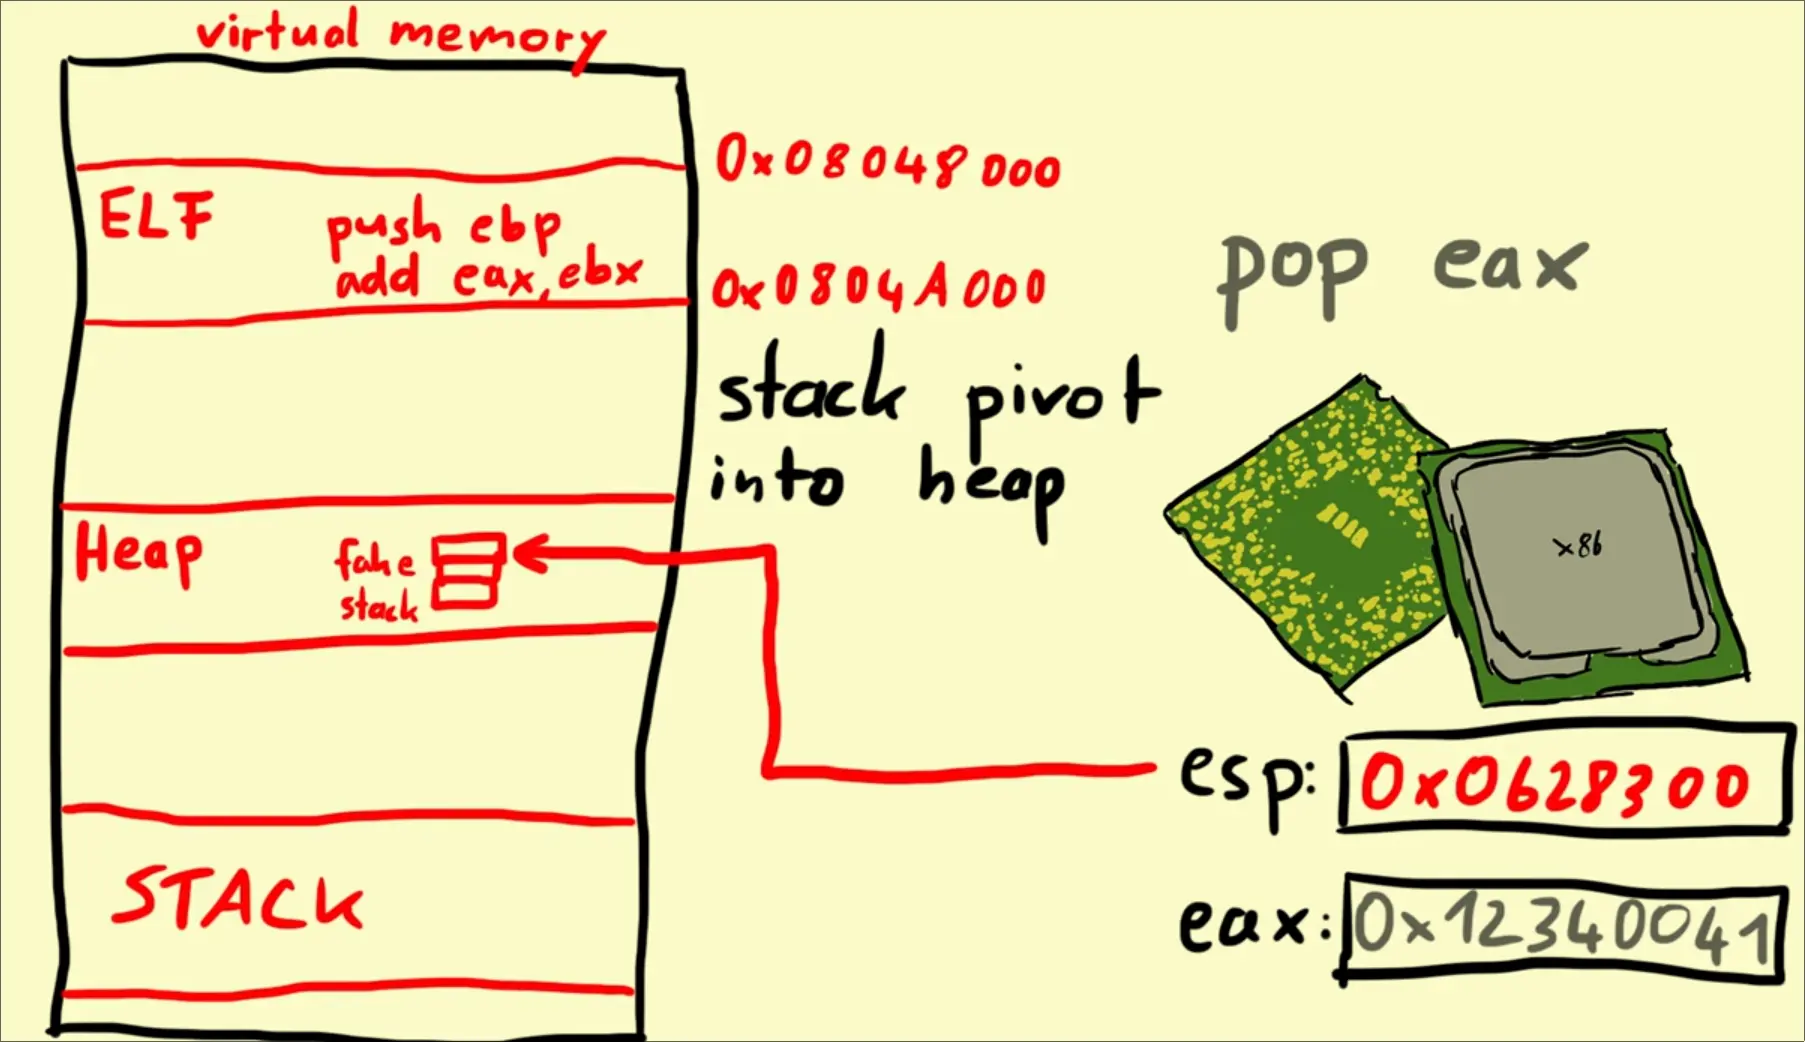 virtual memory
0x08048000
ELF
push ebp
add eax, ebx
0x0804A000
pop eax
stack pivot
into heap
Heap
fake
stack
x86
esp: 0x0628300
STACK
eax: 0x12340041